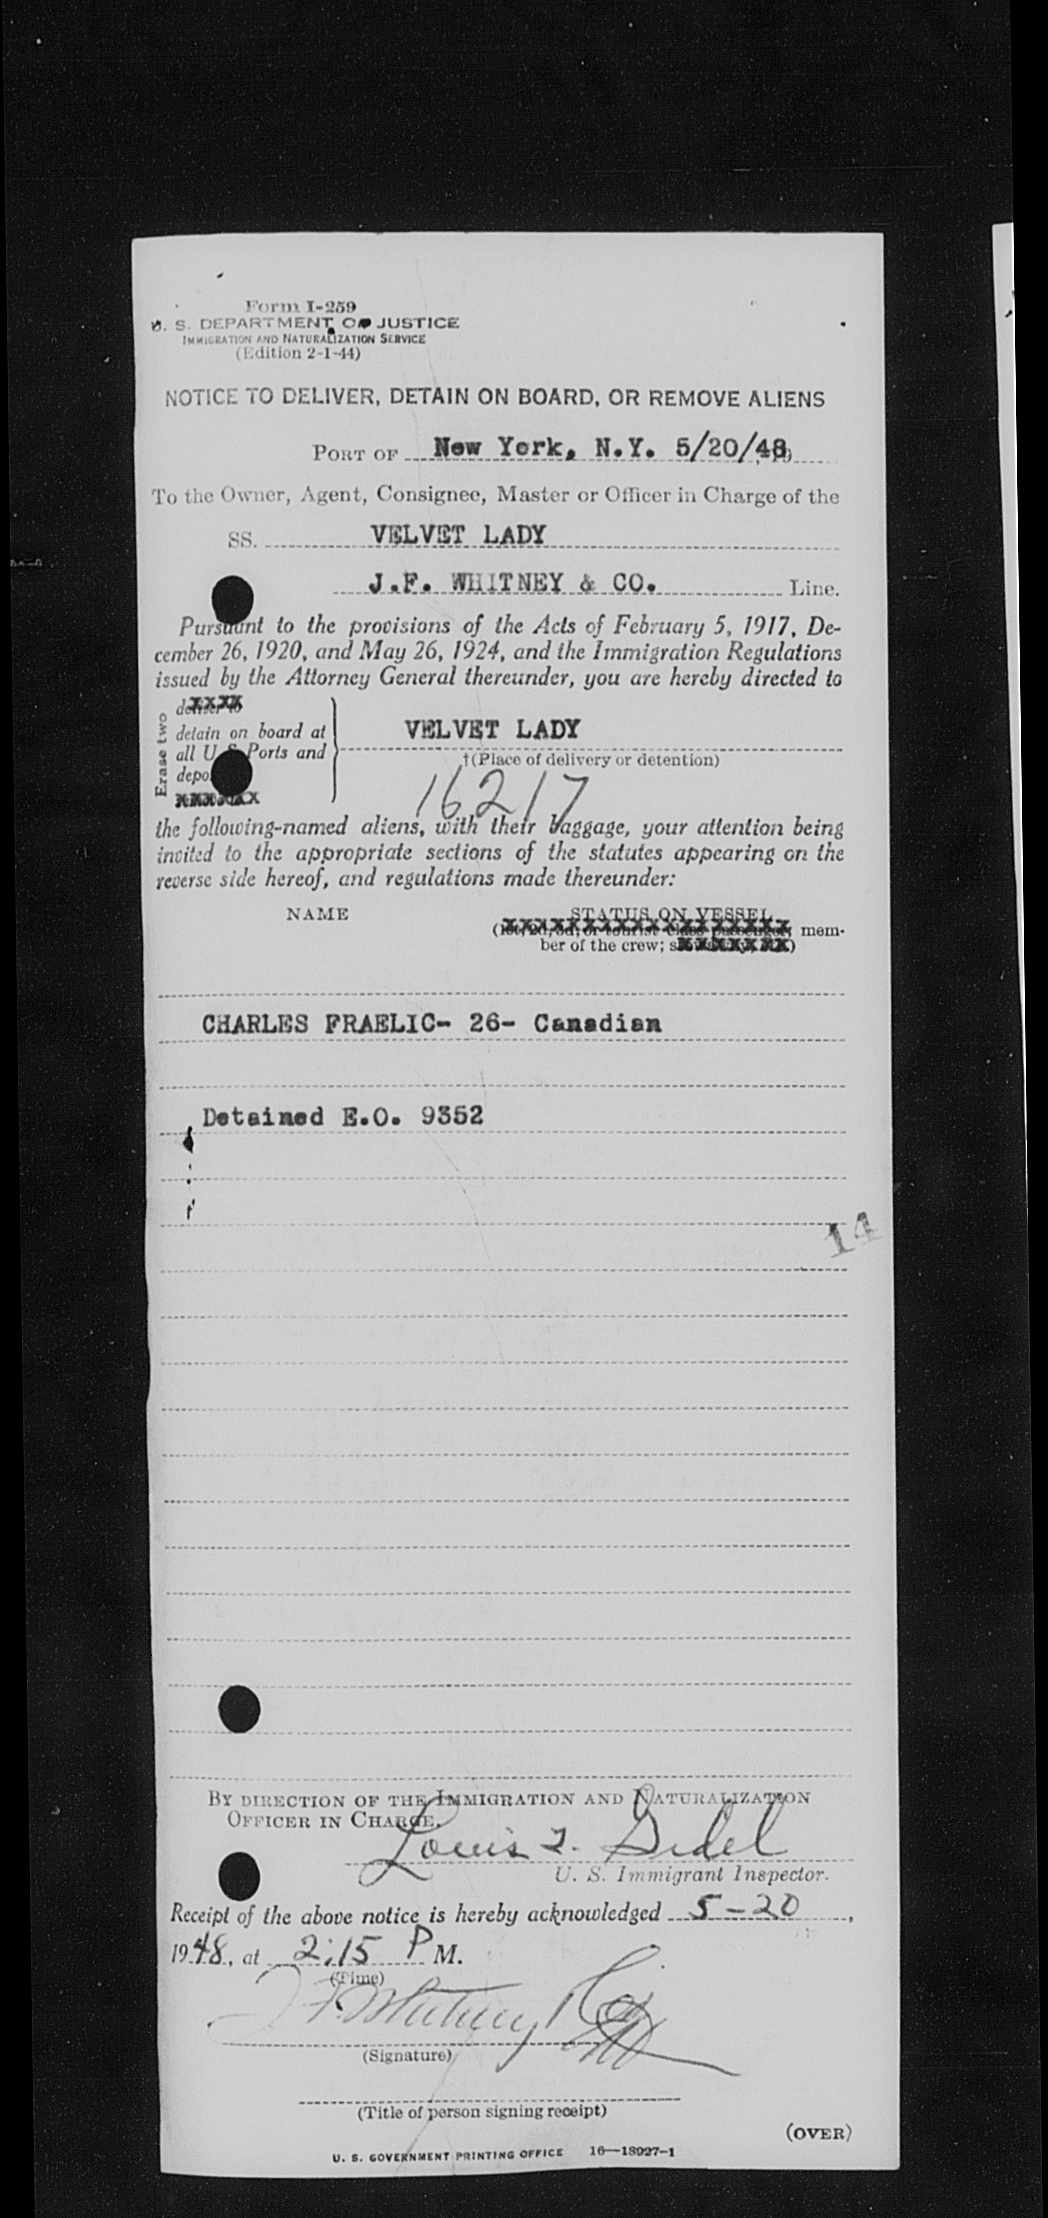 Form I-259
U. S. DEPARTMENT OF JUSTICE
IMMIGRATION AND NATURALIZATION SERVICE
(Edition 2-1-44)
NOTICE TO DELIVER, DETAIN ON BOARD, OR REMOVE ALIENS
PORT OF New York, N.Y. 5/20/48
To the Owner, Agent, Consignee, Master or Officer in Charge of the
SS. VELVET LADY
J.F. WHITNEY & CO. Line.
Pursuant to the provisions of the Acts of February 5, 1917, De-
cember 26, 1920, and May 26, 1924, and the Immigration Regulations
issued by the Attorney General thereunder, you are hereby directed to
Erase two
deliver to
detain on board at
all U S Ports and
depo
VELVET LADY
†(Place of delivery or detention)
16217
the following-named aliens, with their baggage, your attention being
invited to the appropriate sections of the statutes appearing on the
reverse side hereof, and regulations made thereunder:
NAME STATUS ON VESSEL
(1st, 2d, 3d, or tourist class passenger; mem-
ber of the crew;
CHARLES FRAELIC- 26- Canadian
Detained E.O. 9352
14
BY DIRECTION OF THE IMMIGRATION AND NATURALIZATION
OFFICER IN CHARGE.
Louis
U. S. Immigrant Inspector.
Receipt of the above notice is hereby acknowledged 5-20,
1948, at 2:15 P M.
(Time)
J F Whitney & Co
(Signature)
(Title of person signing receipt)
(OVER)
U. S. GOVERNMENT PRINTING OFFICE 16—18927-1